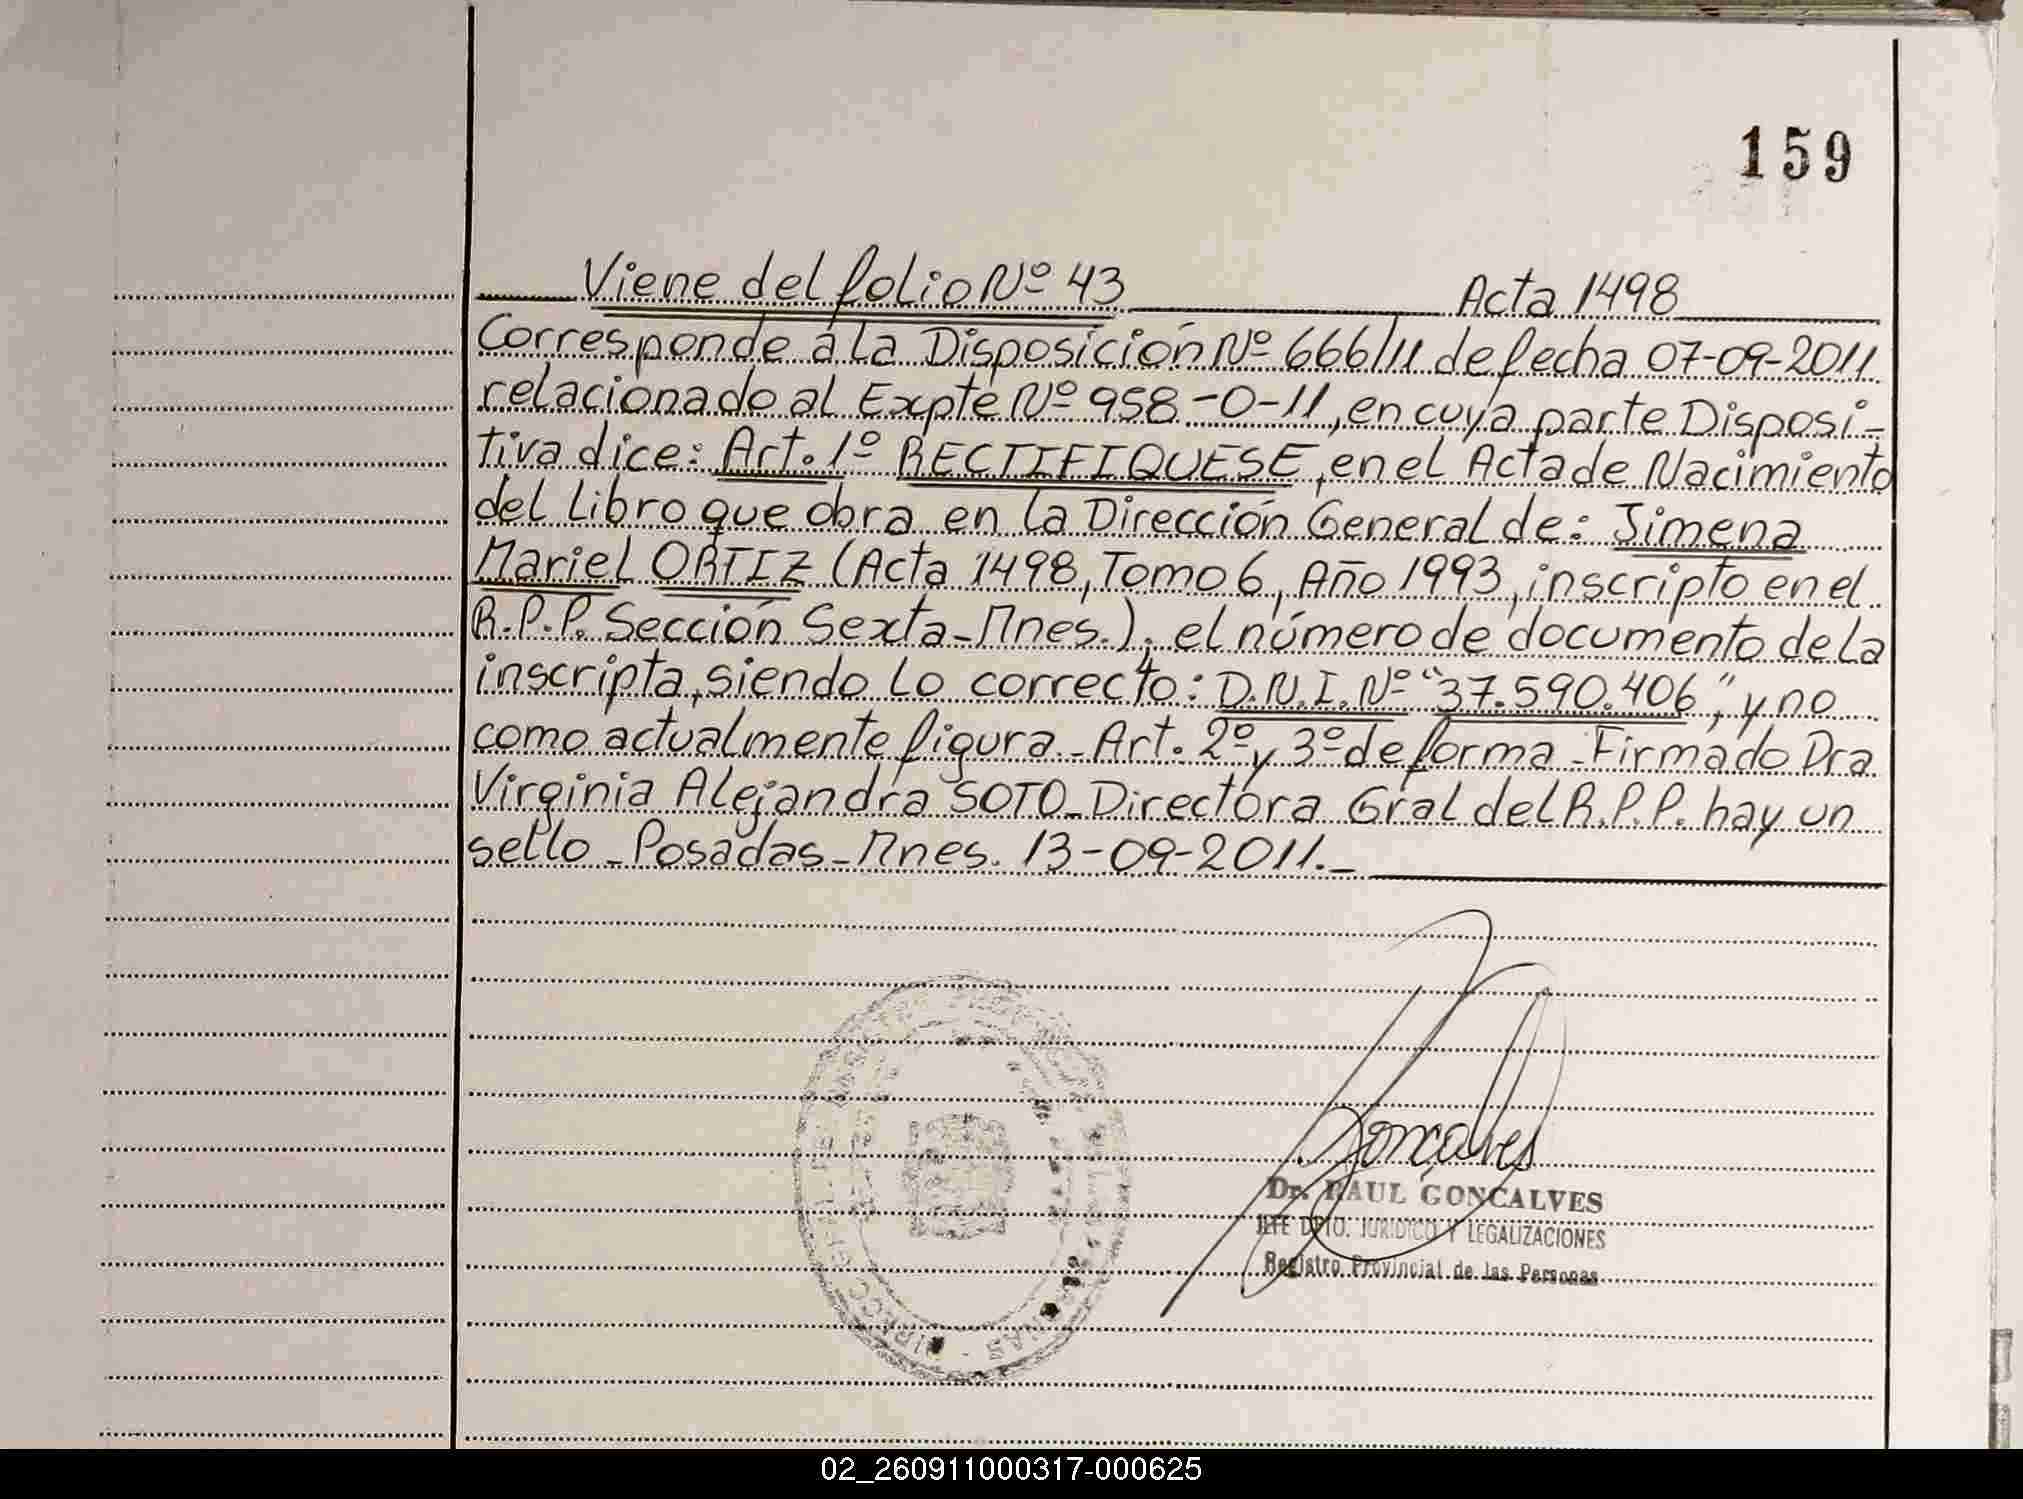 159
Viene del folio Nº 43 Acta 1498
Corresponde a la Disposición Nº 666/11 de fecha 07-09-2011
relacionado al Expte Nº 958-O-11, en cuya parte Disposi-
tiva dice: Art. 1º RECTIFIQUESE, en el Acta de Nacimiento
del Libro que obra en la Dirección General de: Jimena
Mariel ORTIZ (Acta 1498, Tomo 6, Año 1993, inscripto en el
R.P.P. Sección Sexta-Mnes.), el número de documento de la
inscripta, siendo lo correcto: D.N.I. Nº "37.590.406", y no
como actualmente figura - Art. 2º y 3º de forma - Firmado Dra
Virginia Alejandra SOTO - Directora Gral del R.P.P. hay un
sello - Posadas - Mnes. 13-09-2011.-
Goncalves
Dr. RAUL GONCALVES
JEFE DPTO. JURIDICO Y LEGALIZACIONES
Registro Provincial de las Personas
02_260911000317-000625